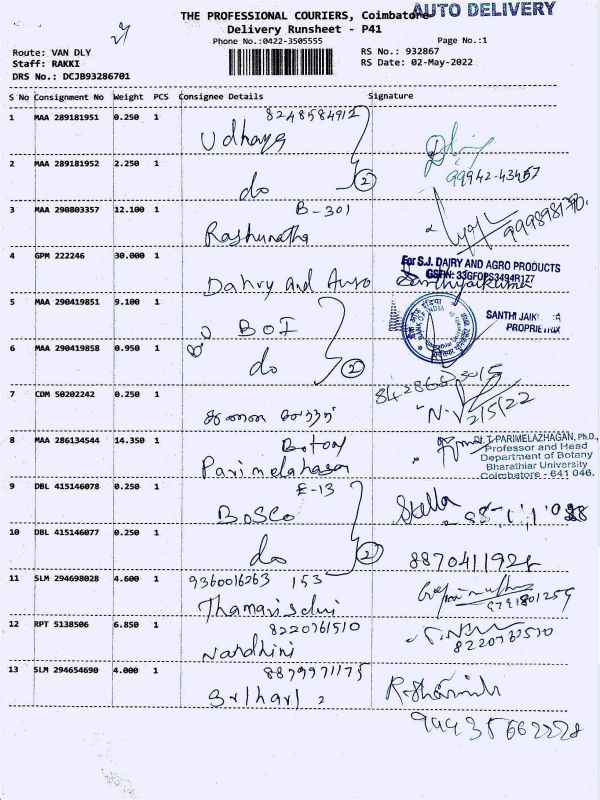 AUTO DELIVERY
THE PROFESSIONAL COURIERS, Coimbatore
Delivery Runsheet - P41
Phone No.:0422-3505555 Page No.:1
Route: VAN DLY RS No.: 932867
Staff: RAKKI RS Date: 02-May-2022
DRS No.: DCJB93286701
S No Consignment No Weight PCS Consignee Details Signature
1 MAA 289181951 0.250 1 8248584912
Udhaya
2 MAA 289181952 2.250 1
do 2 99942-43457
3 MAA 290803357 12.100 1 B-301
Raghunatha
4 GPM 222246 30.000 1 For S.J. DAIRY AND AGRO PRODUCTS
GSTIN: 33GFOPS3494R1Z7
Dahry and Auro
5 MAA 290419851 9.100 1 SANTHI JAIK
BOI PROPRIETRIX
BANK OF INDIA
6 MAA 290419858 0.950 1
do 2
7 CDM 50202242 0.250 1
2/5/22
8 MAA 286134544 14.350 1 Botony
T. PARIMELAZHAGAN, Ph.D.,
Professor and Head
Department of Botany
Bharathiar University
Coimbatore - 641 046.
Parimelahagan
9 DBL 415146078 0.250 1 E-13
BOSCO Stella
10 DBL 415146077 0.250 1
do 2
11 SLM 294698028 4.600 1 9360016263 153
Thamarischi 9791801259
12 RPT 5138506 6.850 1 8220761510
Nandhini 8220761510
13 SLM 294654690 4.000 1 8879971175
Srihari 2